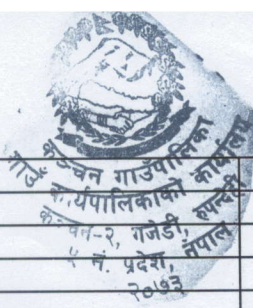 कञ्चन गाउँपालिका
गाउँ कार्यपालिकाको कार्यालय
कञ्चन-२, गजेडी, रुपन्देही
५ नं. प्रदेश, नेपाल
२०७३